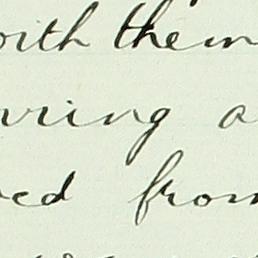 with them
uring a
ed from